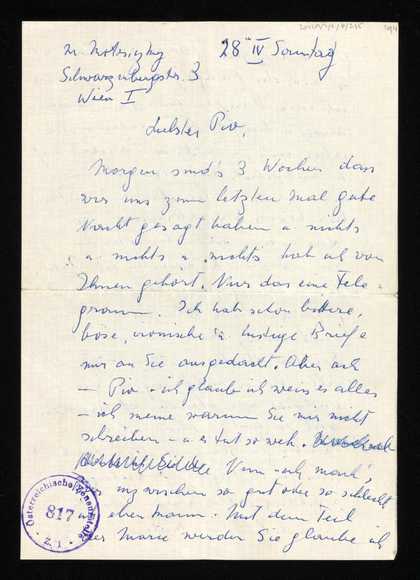 M. Motesiczky 28 IV Sonntag
Schwarzenbergstr. 3
Wien I
Liebster Pio,
Morgen sind's 3 Wochen dass
wir uns zum letzten Mal gute
Nacht gesagt haben u nichts
u nichts u nichts hab ich von
Ihnen gehört. Nur das eine Tele-
gramm. Ich hab schon bittere,
böse, ironische u lustige Briefe
mir an Sie ausgedacht. Aber ach
– Pio – ich glaube ich weiss es alles
– ich meine warum Sie mir nicht
schreiben – u es tut so weh.
Nein – ich mach's
inzwischen so gut oder so schlecht
wie eben man. Mit dem Teil
der Marie werden Sie glaube ich
Österreichische Zensurstelle
817
Z. 1